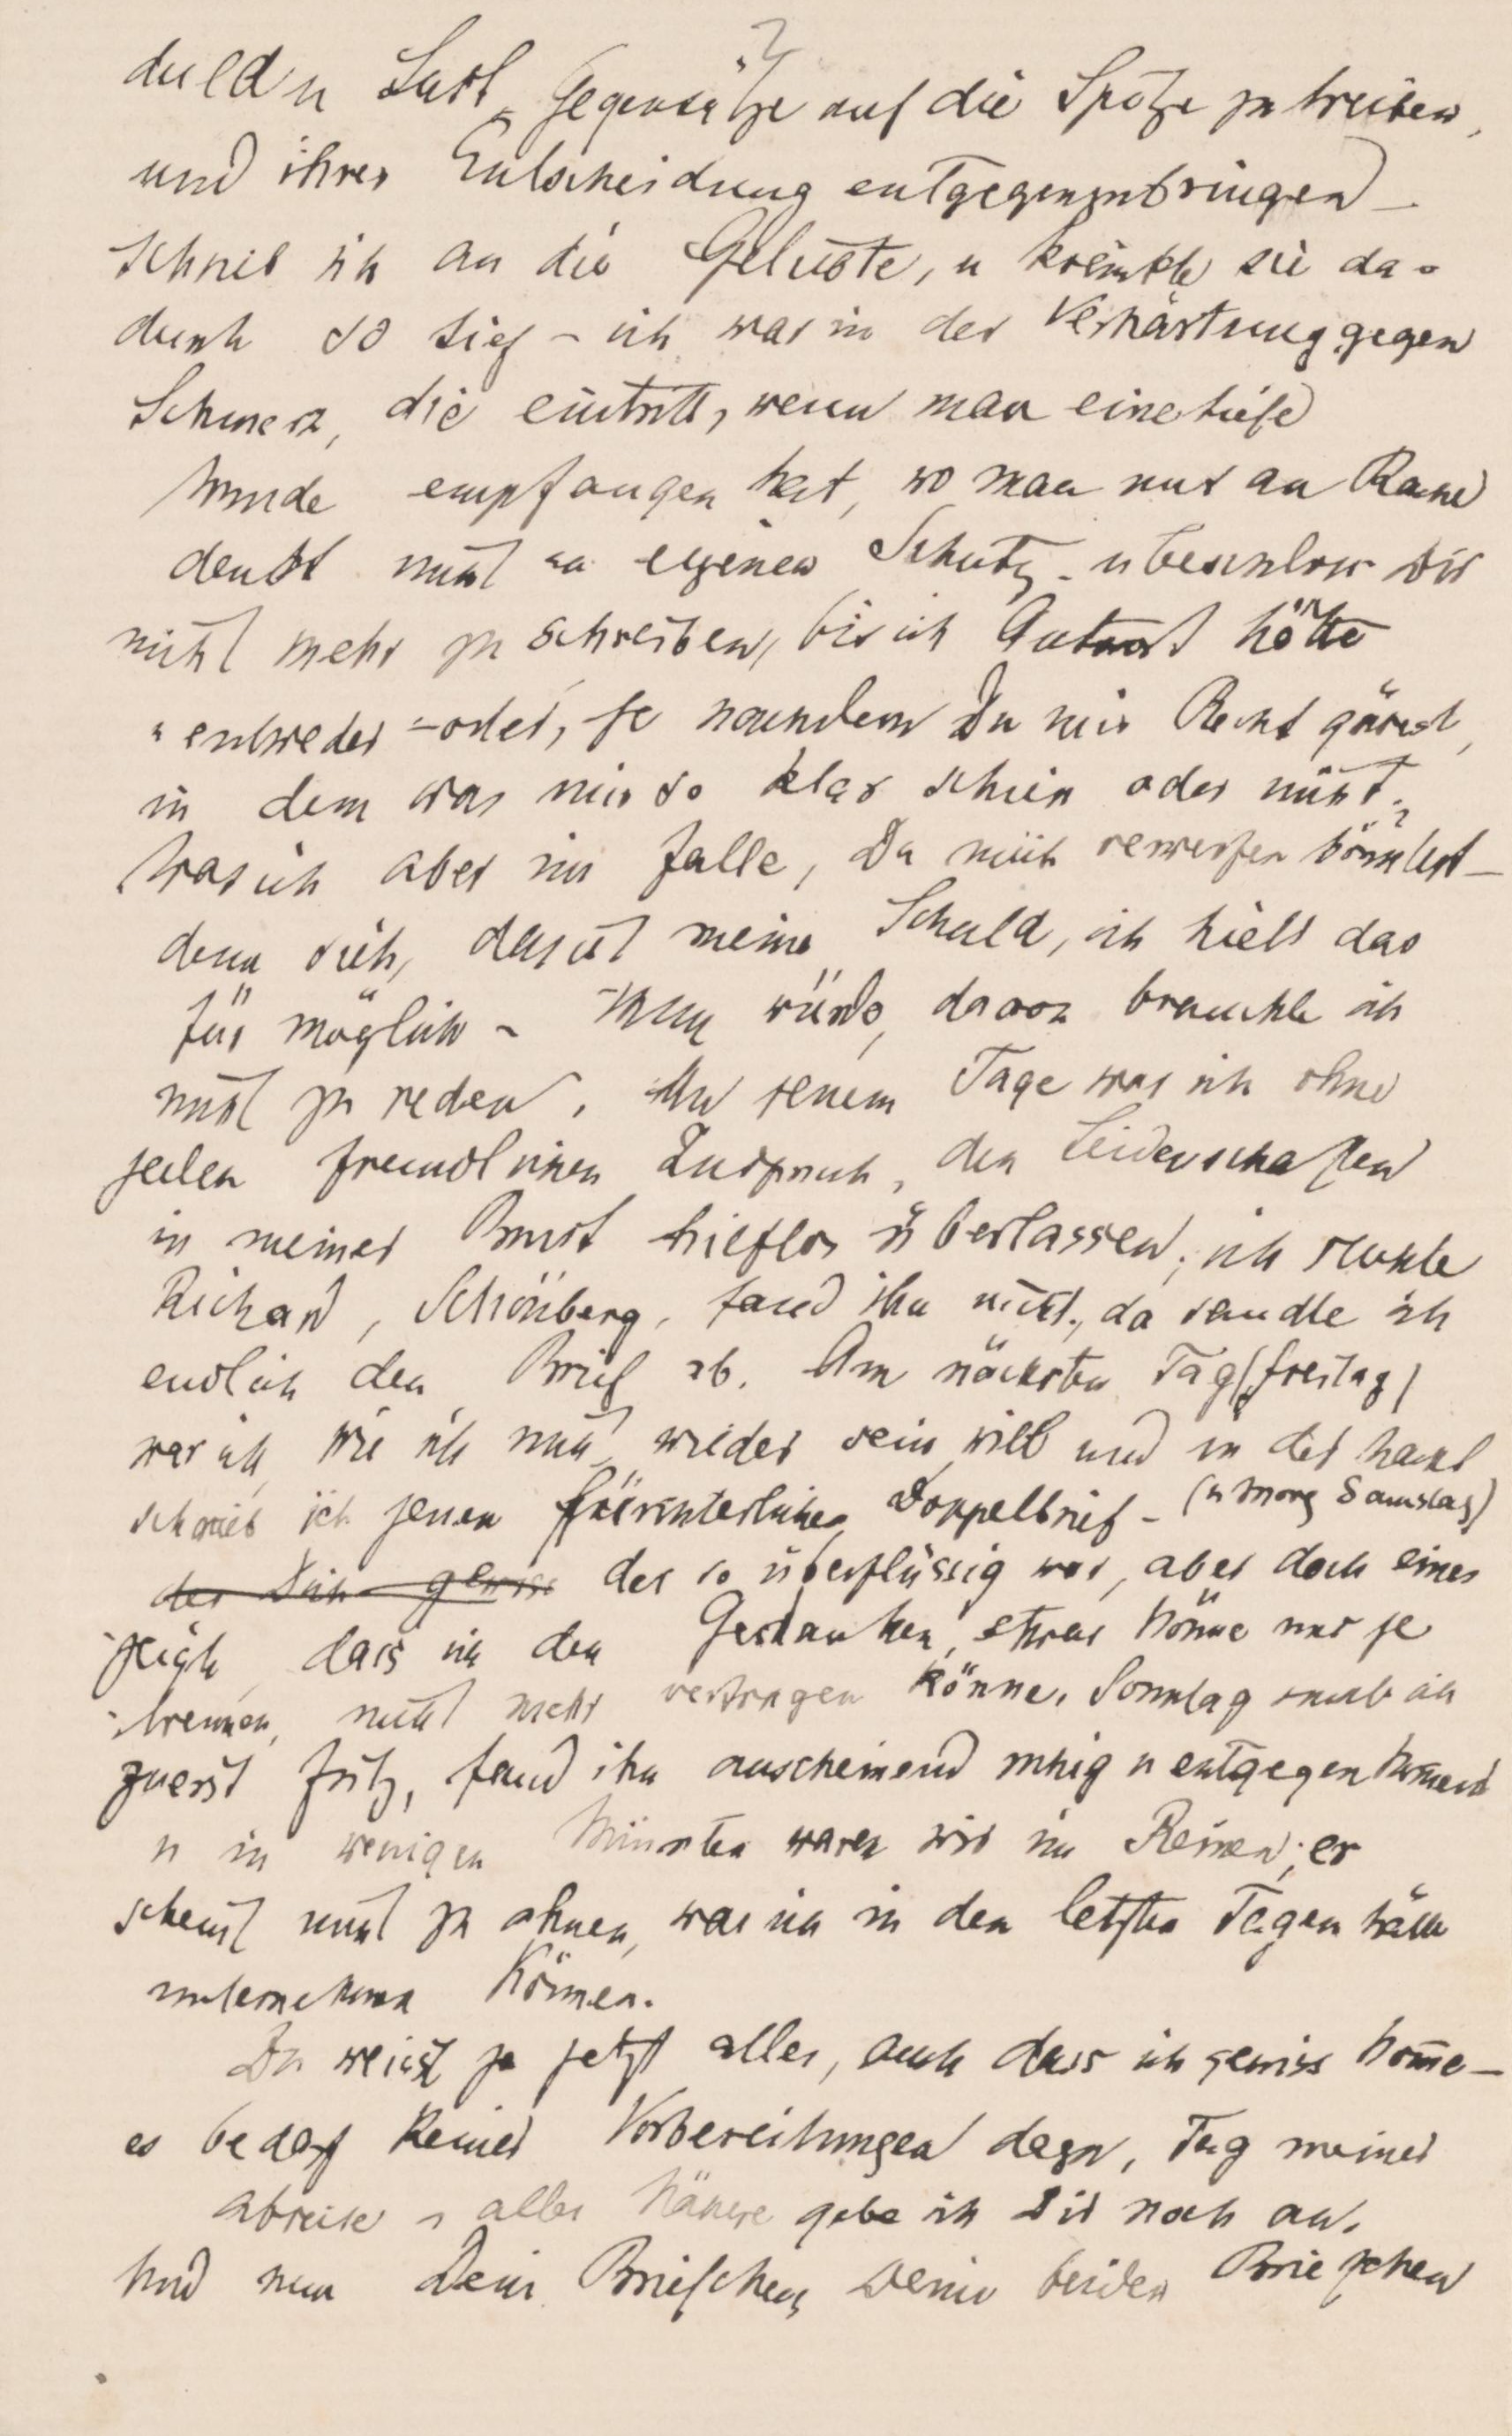 duld u Lust, Gegensätze auf die Spitze zu treiben,
und ihrer Entscheidung entgegenzubringen –
schrieb ich an die Geliebte, u kränkte sie da-
durch so tief – ich war in der Verhärtung gegen
Schmerz, die eintritt, wenn man eine tiefe
Wunde empfangen hat, wo man nur an Rache
denkt nicht an eigenen Schutz – u beschloss Dir
nicht mehr zu schreiben, bis ich Antwort hätte
entweder – oder, je nachdem Du mir Recht gäbest,
in dem was mir so klar schien oder nicht.
Was ich aber im Falle, Du mich verwerfen könntest –
denn sieh, das ist meine Schuld, ich hielt das
für möglich – thun würde, davon brauchte ich
nicht zu reden. An jenem Tage war ich ohne
jeden freundlichen Zuspruch, den Leidenschaften
in meiner Brust hilflos überlassen; ich suchte
Richard, Schönberg, fand ihn nicht, da sandte ich
endlich den Brief ab. Am nächsten Tag (Freitag)
war ich, wie ich nicht wieder sein will und in der Nacht
schrieb ich jenen fürchterlichen Doppelbrief – (u Morg Samstag)
der Dich gewiss der so überflüssig war, aber doch eines
zeigte, dass ich den Gedanken, etwas könne uns je
trennen, nicht mehr vertragen könne. Sonntag sucht ich
zuerst Fritz, fand ihn anscheinend ruhig u entgegenkommend
u in wenigen Minuten waren wir im Reinen; er
scheint nicht zu ahnen, was ich in den letzten Tagen hätte
unternehmen können.
Du weisst ja jetzt alles, auch dass ich gewiss kom̅e –
es bedarf keiner Vorbereitungen dazu, Tag meiner
Abreise u alles Nähere gebe ich Dir noch an.
Und nun Dein Briefchen, Deine beiden Briefchen